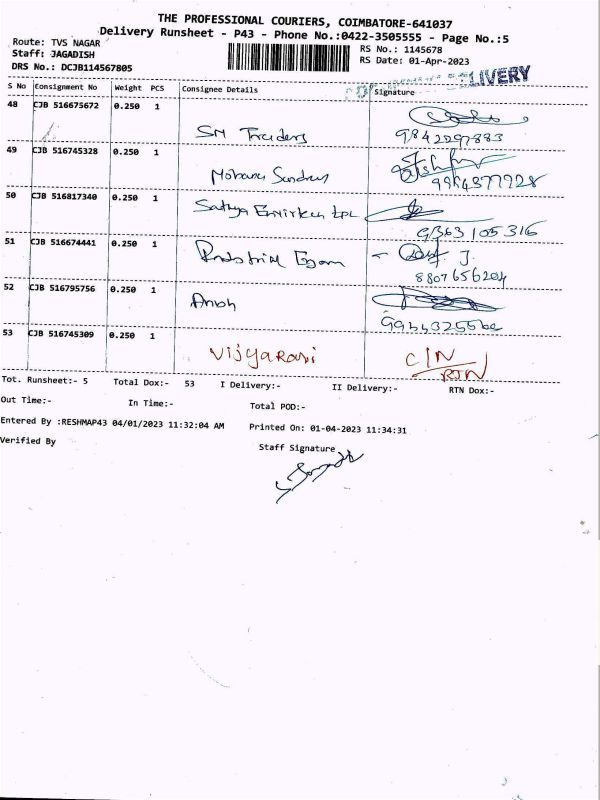 THE PROFESSIONAL COURIERS, COIMBATORE-641037
Delivery Runsheet - P43 - Phone No.:0422-3505555 - Page No.:5
Route: TVS NAGAR
Staff: JAGADISH
DRS No.: DCJB114567805
RS No.: 1145678
RS Date: 01-Apr-2023
DELIVERY
S No Consignment No Weight PCS Consignee Details Signature
48 CJB 516675672 0.250 1 SM Traders 9842297883
49 CJB 516745328 0.250 1 Mohana Sundray 9944377928
50 CJB 516817340 0.250 1 Sathya 9363105316
51 CJB 516674441 0.250 1 J. 8807656204
52 CJB 516795756 0.250 1
53 CJB 516745309 0.250 1 Vijyarani C/N RTN
Tot. Runsheet:- 5 Total Dox:- 53 I Delivery:- II Delivery:- RTN Dox:-
Out Time:- In Time:- Total POD:-
Entered By :RESHMAP43 04/01/2023 11:32:04 AM Printed On: 01-04-2023 11:34:31
Verified By Staff Signature